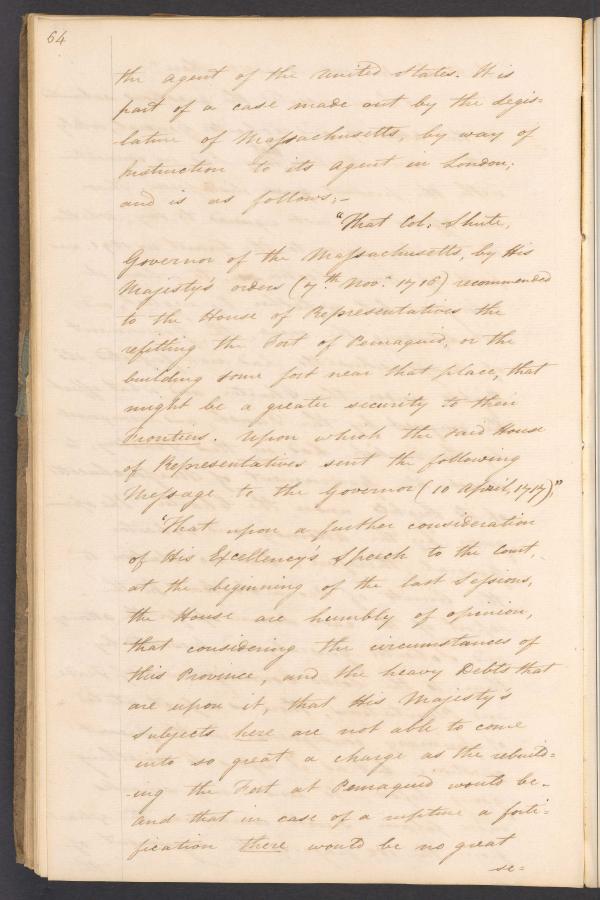 64
the agent of the United States. It is
part of a case made out by the Legis=
lature of Massachusetts, by way of
Instruction to its agent in London;
and is as follows;-
"That Col: Shute,
Governor of the Massachusetts, by His
Majesty's orders (7th Nov: 1716) recommended
to the House of Representatives the
refitting the Fort of Pemaquid, or the
building some fort near that place, that
might be a greater security to their
Frontiers. Upon which the said House
of Representatives sent the following
Message to the Governor (10 April, 1717);"
'That upon a further consideration
of His Excellency's Speech to the Court,
at the beginning of the last Sessions,
the House are humbly of opinion,
that considering the circumstances of
this Province, and the heavy Debts that
are upon it, that His Majesty's
Subjects here are not able to come
into so great a charge as the rebuild=
-ing the Fort at Pemaquid would be-
and that in case of a rupture a forti=
fication there would be no great
se=